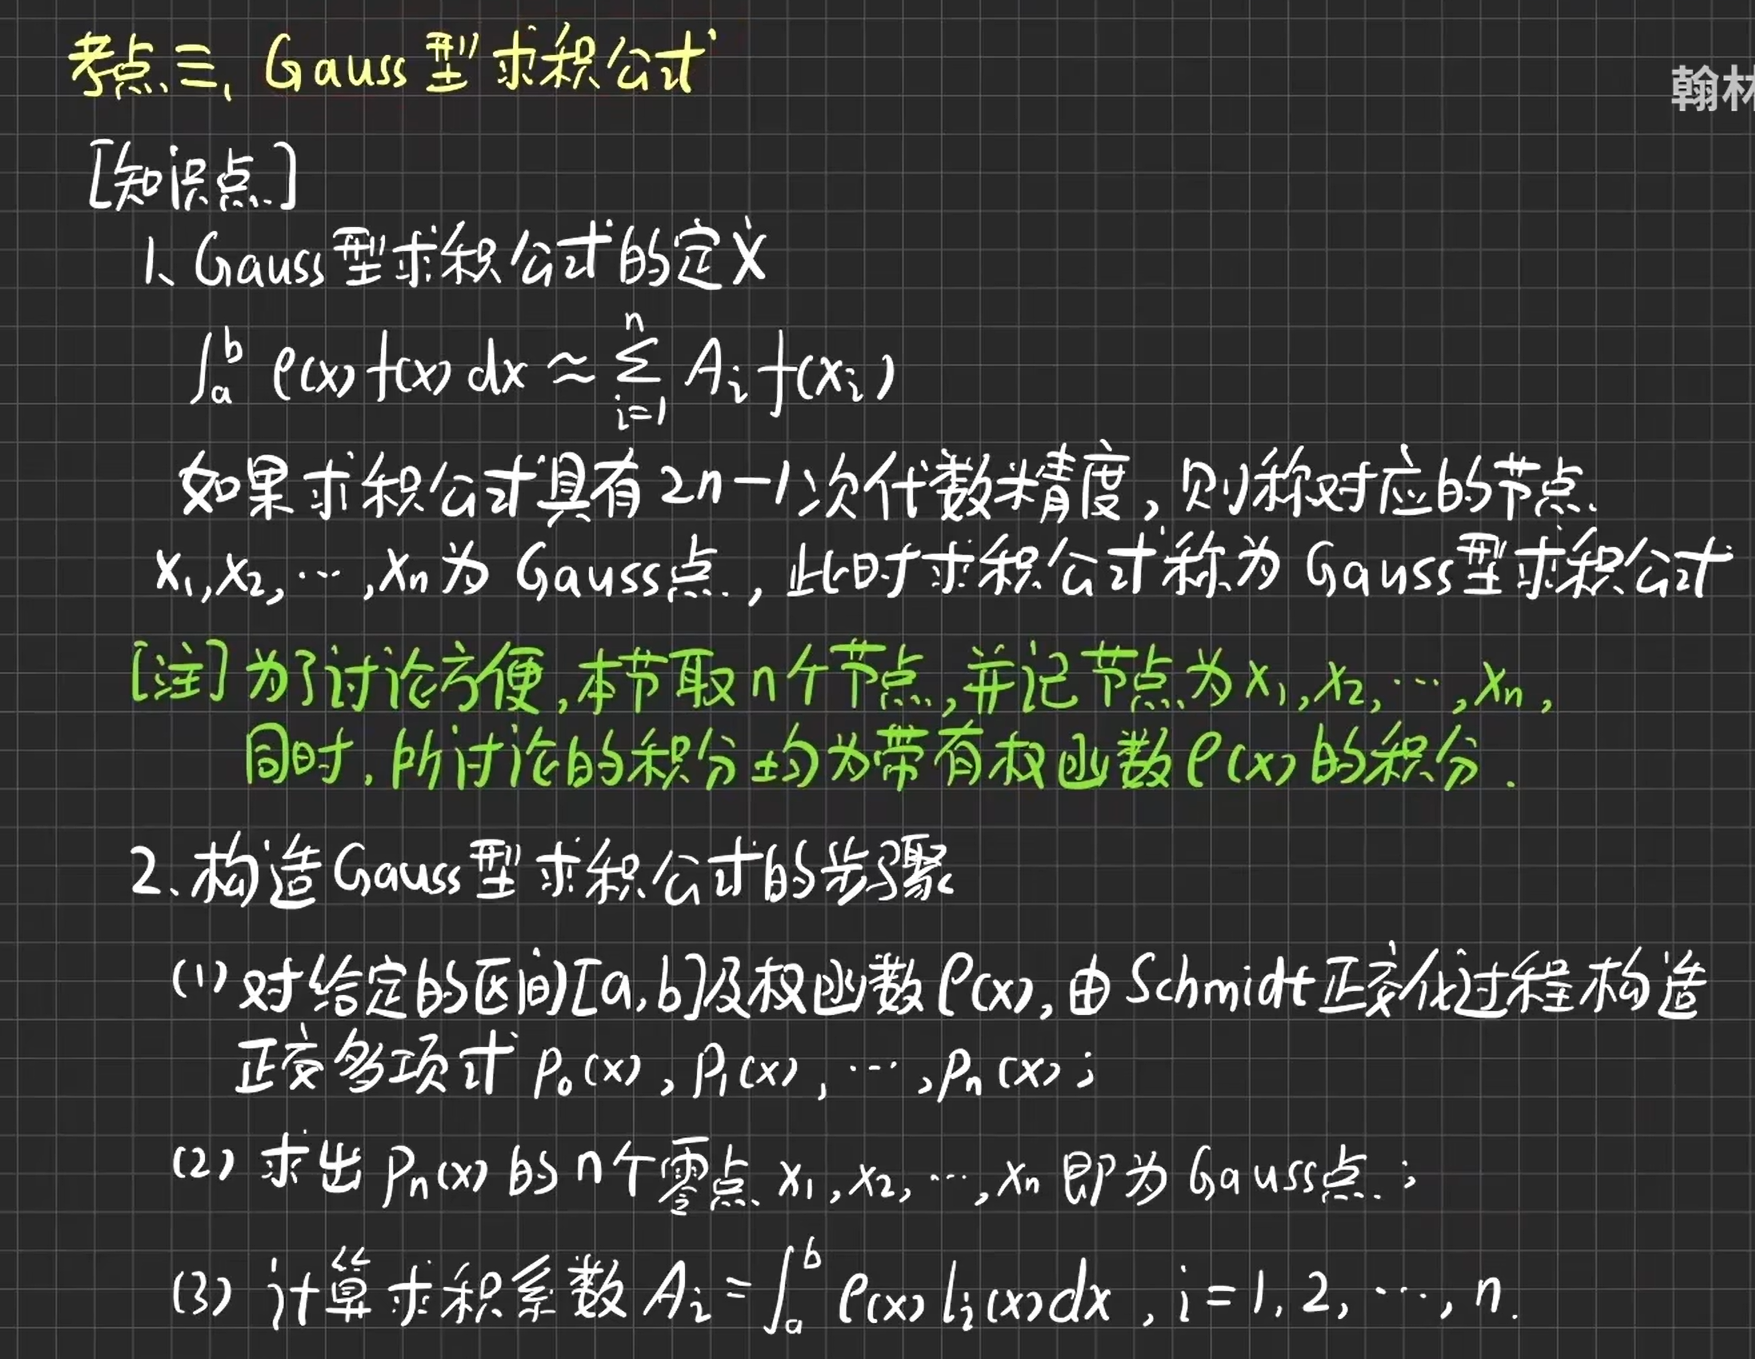 考点三、Gauss型求积公式
翰林
[知识点]
1、Gauss型求积公式的定义
∫_a^b ρ(x)f(x)dx ≈ Σ_{i=1}^n A_i f(x_i)
如果求积公式具有2n-1次代数精度，则称对应的节点
x₁,x₂,…,xₙ为Gauss点，此时求积公式称为Gauss型求积公式
[注]为了讨论方便,本节取n个节点,并记节点为x₁,x₂,…,xₙ,
同时,所讨论的积分均为带有权函数ρ(x)的积分.
2、构造Gauss型求积公式的步骤
(1)对给定的区间[a,b]及权函数ρ(x),由Schmidt正交化过程构造
正交多项式p₀(x),p₁(x),…,pₙ(x);
(2)求出pₙ(x)的n个零点x₁,x₂,…,xₙ即为Gauss点;
(3)计算求积系数A_i=∫_a^b ρ(x)l_i(x)dx,i=1,2,…,n.